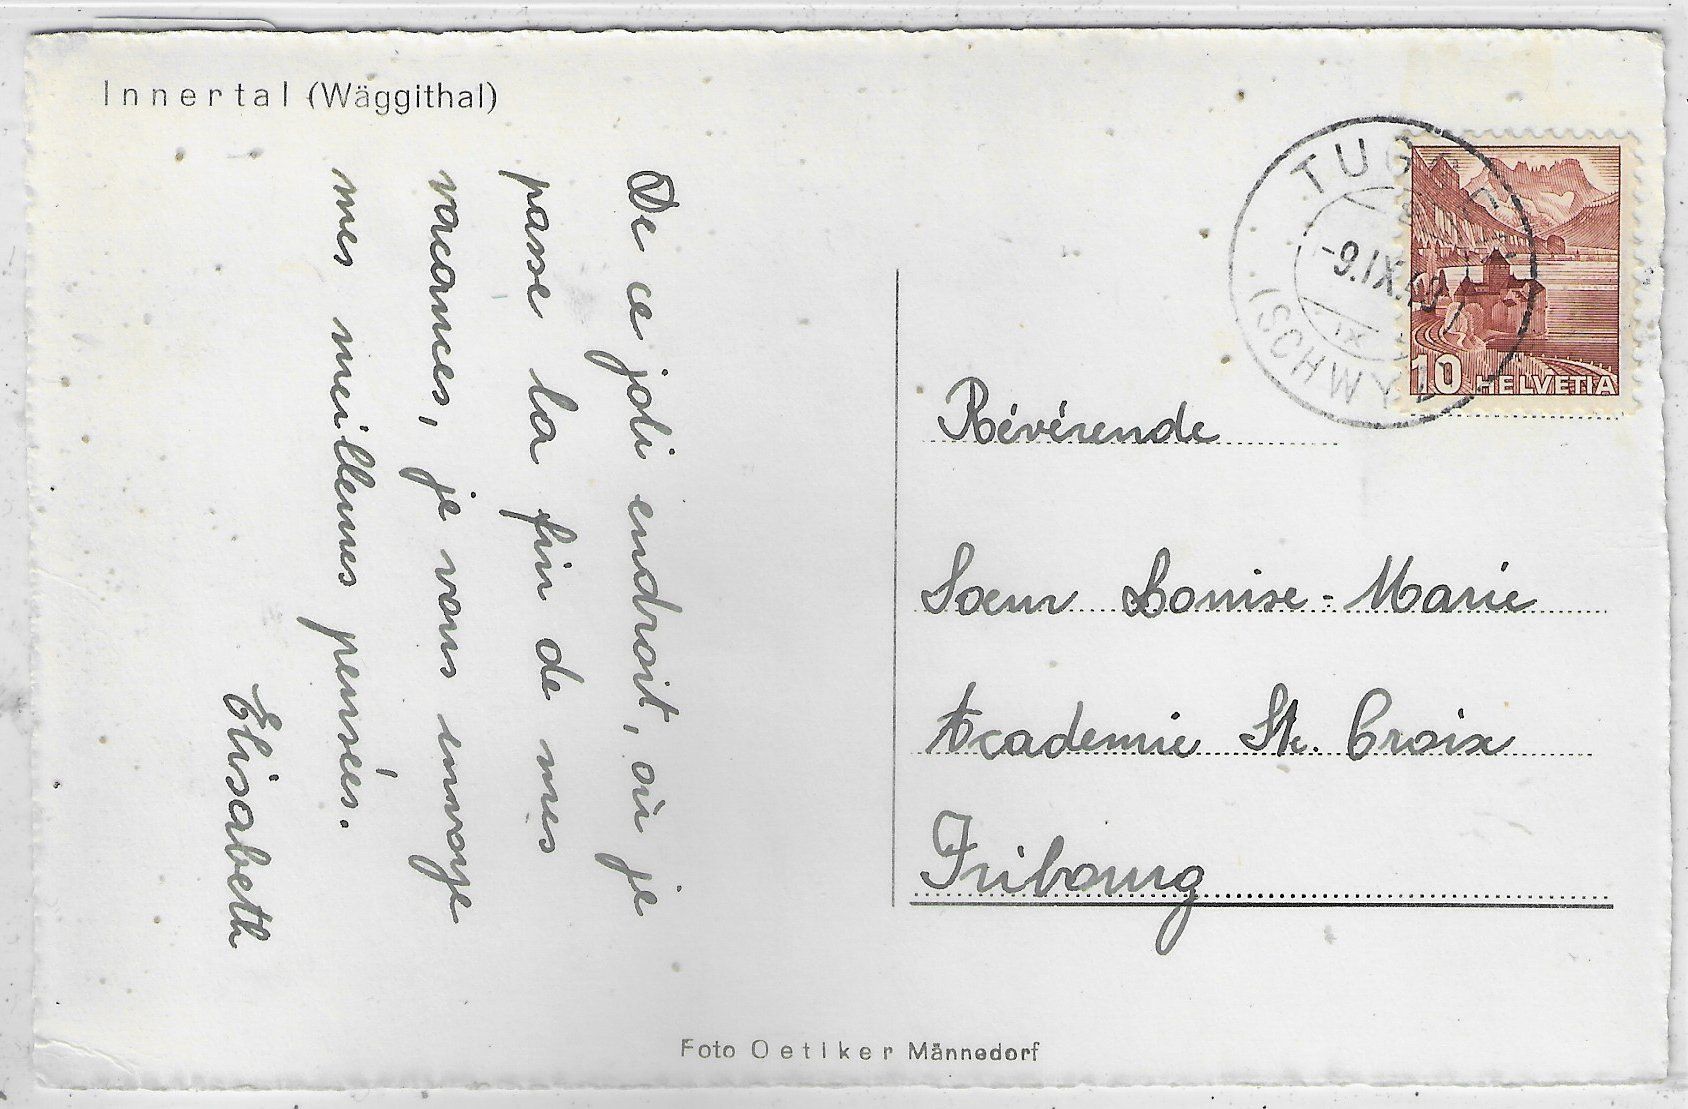 Innertal (Wäggithal)
De ce joli endroit, où je
passe la fin de mes
vacances, je vous envoye
mes meilleures pensées.
Elisabeth
TUGGEN
-9.IX.
IX
(SCHWYZ)
10 HELVETIA
Révérende
Soeur Louise-Marie
Academie Ste. Croix
Fribourg
Foto Oetiker Männedorf